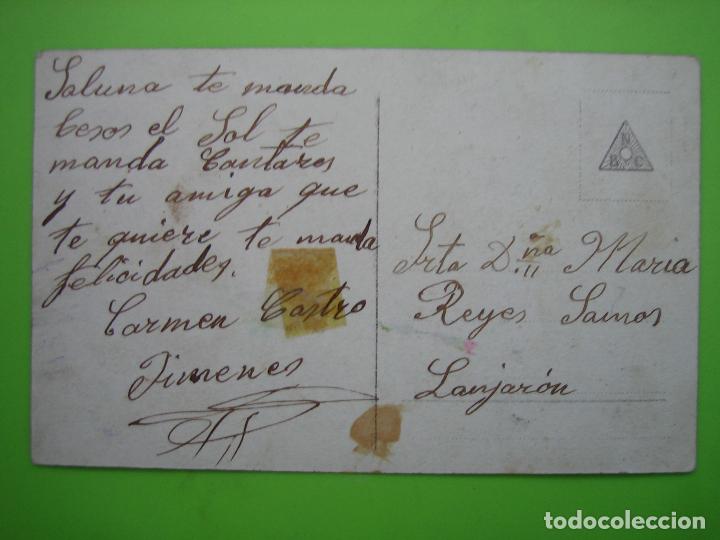 Saluna te manda
besos el Sol te
manda Cantares
y tu amiga que
te quiere te manda
felicidades.
Carmen Castro
Jimenes
N
B C
Srta D.ña Maria
Reyes Samos
Lanjarón
todocoleccion.net